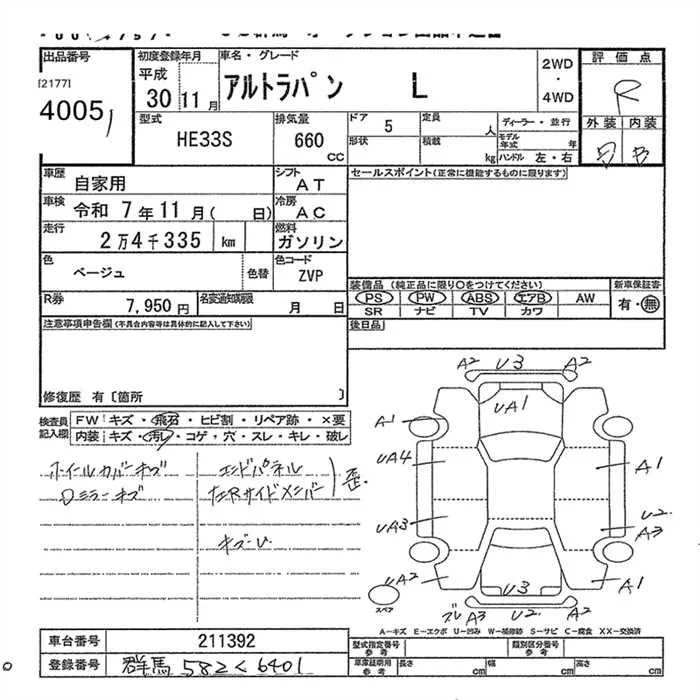 出品番号
[2177]
4005
初度登録年月
平成
30 11月
車名・グレード
アルトラパン L
2WD
・
4WD
評価点
R
外装 内装
B
型式
HE33S
排気量
660
CC
ドア 5
形状
定員
人
積載
kg
ディーラー・並行
モデル年式 年
ハンドル 左・右
車歴
自家用
シフト
AT
車検
令和 7年11月( 日)
冷房
AC
走行
2万4千335 km
燃料
ガソリン
色
ベージュ
色替
色コード
ZVP
R券
7,950円
名変通知期限
月 日
セールスポイント(正常に機能するものに限ります)
装備品(純正品に限り○をつけてください)
新車保証書
PS PW ABS エアB AW
SR ナビ TV カワ
有・無
後日品
注意事項申告欄(不具合内容等は具体的に記入して下さい)
修復歴 有〔箇所 〕
検査員
記入欄
FW キズ・飛石・ヒビ割・リペア跡・×要
内装 キズ・汚レ・コゲ・穴・スレ・キレ・破レ
ホイールカバーキズ
Dミラーキズ
エンドパネル
左Rサイドメンバー
歪
キズ・U
A2 U3 A2
UA1
A1
UA4
A1
UA3
U2
A3
UA2
U3
A1
スペア
ズレ A3 U2 A2
A―キズ E―エクボ U―凹み W―補修跡 S―サビ C―腐食 XX―交換済
車台番号
211392
登録番号
群馬 582 く 6401
型式指定番号
参考
類別区分番号
参考
車庫証明用
参考
長さ cm
幅 cm
高さ cm